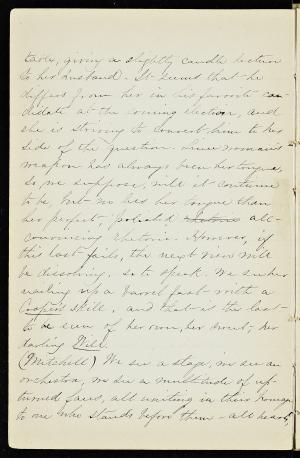 table, giving a slightly candle lecture
to her husband. It seems that he
differs from her in his favorite can-
didate at the coming election, and
she is striving to convert him to her
side of the question. Since woman's
weapon has always been her tongue,
so, we suppose, will it continue
to be, but no less her tongue than
her perfect, polished all-
convincing rhetoric. However, if
this last fails, the next view will
be dissolving, so to speak. We see her
nailing up a barrel fast with a
Cooper's skill, and that is the last
to be seen of her own, her sweet, her
darling Will.
(Mitchell) We see a stage, we see an
orchestra, we see a multitude of up-
turned faces, all uniting in their homage
to one who stands before them - all hearts,